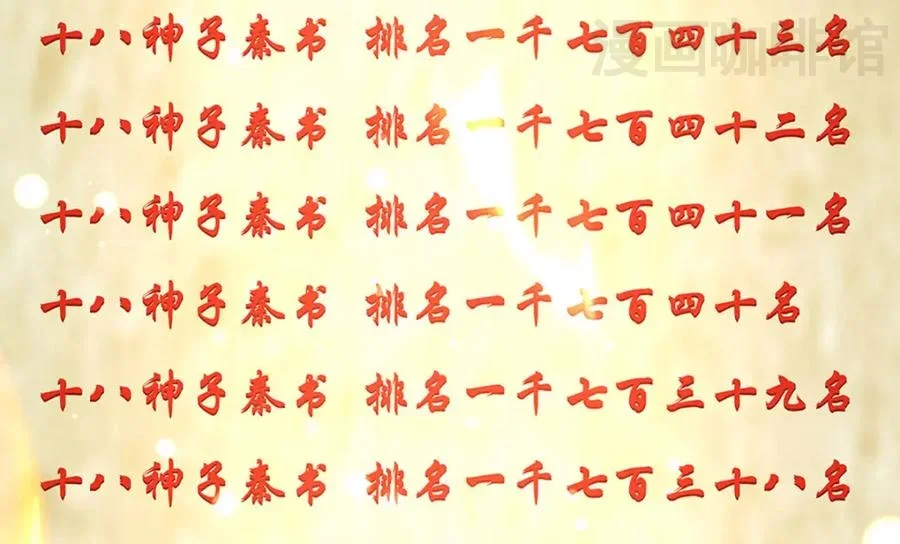 漫画咖啡馆
十八神子秦书 排名一千七百四十三名
十八神子秦书 排名一千七百四十二名
十八神子秦书 排名一千七百四十一名
十八神子秦书 排名一千七百四十名
十八神子秦书 排名一千七百三十九名
十八神子秦书 排名一千七百三十八名